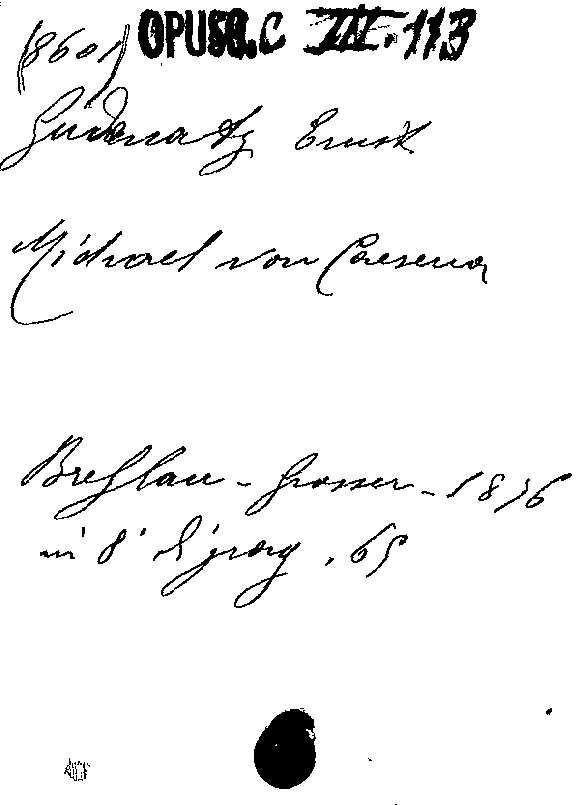 (8601) OPUSC. C VII. 113
Gudenatz Ernst
Michael von Caesena
Breslau - Grosser - 1876
in 8° di pag. 65